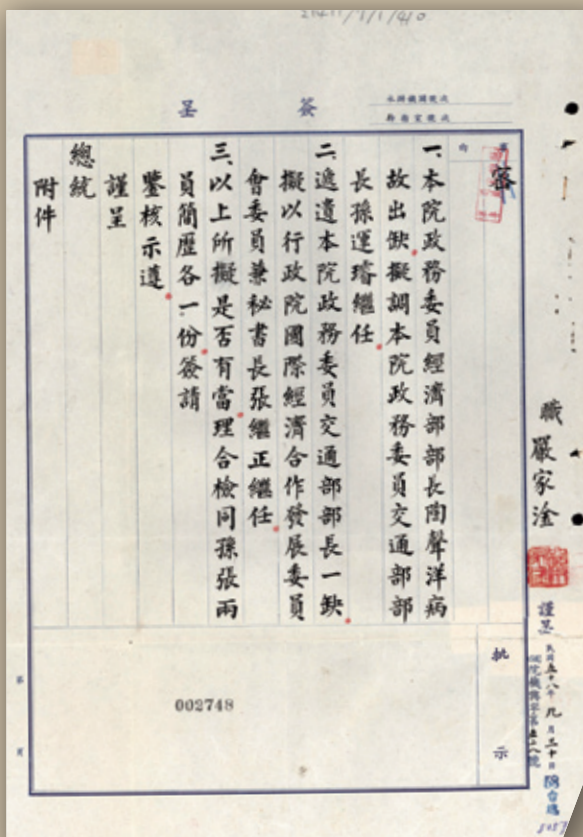 簽呈
密
一、本院政務委員經濟部部長陶聲洋病
故出缺擬調本院政務委員交通部部
長孫運璿繼任
二、遞遺本院政務委員交通部部長一缺
擬以行政院國際經濟合作發展委員
會委員兼秘書長張繼正繼任
三、以上所擬是否有當理合檢同孫張兩
員簡歷各一份簽請
鑒核示遵
謹呈
總統
附件
職嚴家淦
謹呈
批示
002748